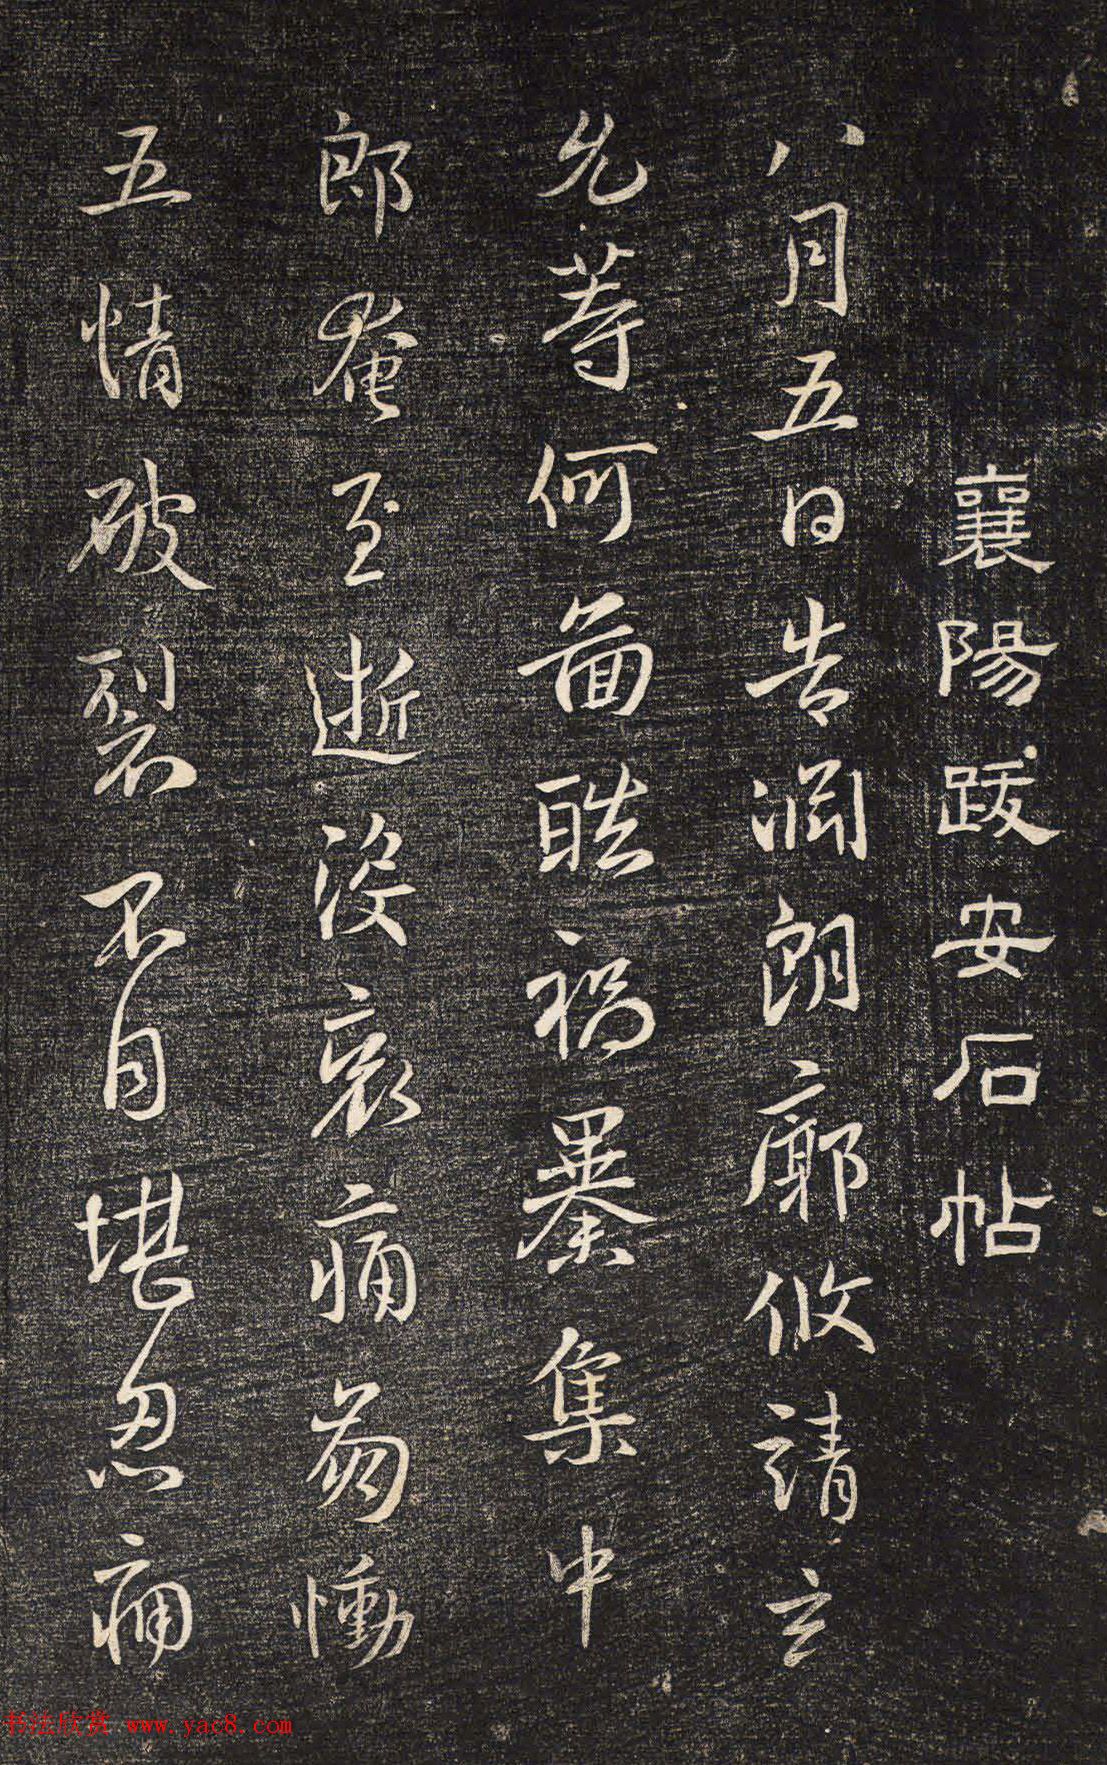 襄陽跋安石帖
八月五日告淵朗廓攸靖玄
允等何圖酷禍暴集中
郎奄至逝沒哀痛崩慟
五情破裂不自堪忍痛
书法欣赏 www.yac8.com